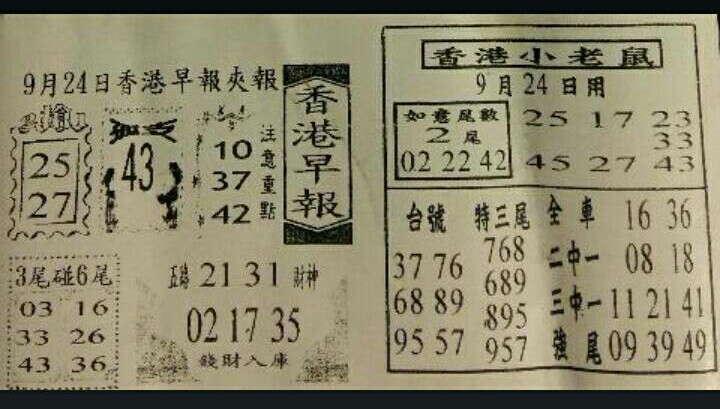 9月24日香港早報夾報
香港早報
25
27
43
10
37
42
注意重點
3尾碰6尾
03 16
33 26
43 36
21 31 財神
02 17 35
錢財入庫
香港小老鼠
9月24日用
如意尾數
2尾
02 22 42
25 17 23
33
45 27 43
台號
37 76
68 89
95 57
特三尾
768
689
895
957
全車 16 36
二中一 08 18
三中一 11 21 41
強尾 09 39 49